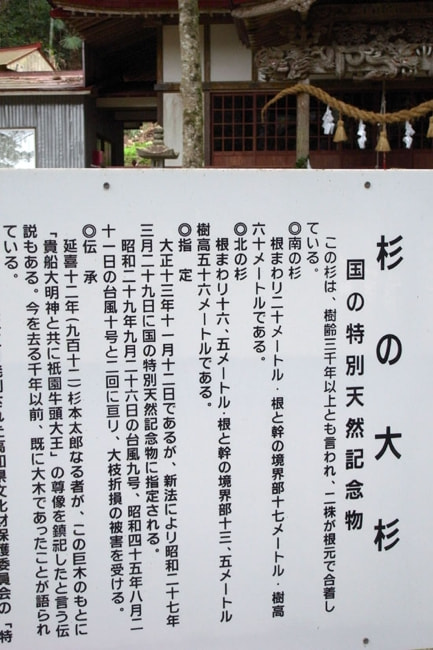 杉の大杉
国の特別天然記念物
この杉は、樹齢三千年以上とも言われ、二株が根元で合着し
ている。
◎南の杉
根まわり二十メートル・根と幹の境界部十七メートル・樹高
六十メートルである。
◎北の杉
根まわり十六、五メートル・根と幹の境界部十三、五メートル
樹高五十六メートルである。
◎指定
大正十三年十一月十二日であるが、新法により昭和二十七年
三月二十九日に国の特別天然記念物に指定される。
昭和二十九年九月二十六日の台風九号、昭和四十五年八月二
十一日の台風十号と二回に亘り、大枝折損の被害を受ける。
◎伝承
延喜十二年(九百十二)杉本太郎なる者が、この巨木のもとに
「貴船大明神と共に祇園牛頭大王」の尊像を鎮祀したと言う伝
説もある。今を去る千年以前、既に大木であったことが語られ
ている。
された高知県文化財保護委員会の「特